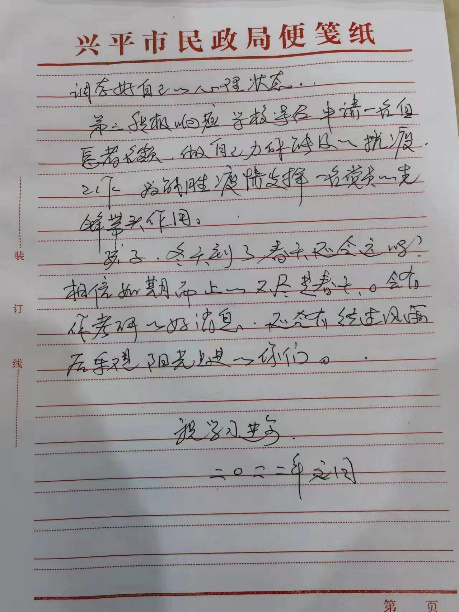 兴平市民政局便笺纸
调态好自己的心理状态..
第二积极响应学校号召申请一名值
医者人数,做自己力所能及的抗疫
工作 为战胜疫情发挥一名党员的先
锋带头作用。
孩子,冬天到了春天还会远吗?
相信如期而止的不只是春天,。会有
你考研的好消息,还会有经过风雨
后乐观 阳光上进的你们。
祝学习进步
二〇二二年
装
订
线
第 页